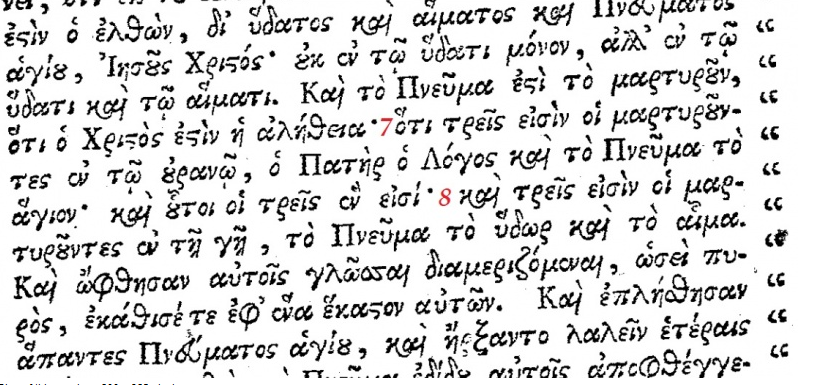 ἐστὶν ὁ ἐλθὼν, δι' ὕδατος καὶ αἵματος καὶ Πνεύματος
ἁγίου, Ἰησοῦς Χριστός· οὐκ ἐν τῷ ὕδατι μόνον, ἀλλ' ἐν τῷ “
ὕδατι καὶ τῷ αἵματι. Καὶ τὸ Πνεῦμα ἐστὶ τὸ μαρτυροῦν, “
ὅτι ὁ Χριστὸς ἐστὶν ἡ ἀλήθεια· 7 ὅτι τρεῖς εἰσὶν οἱ μαρτυροῦν- “
τες ἐν τῷ οὐρανῷ, ὁ Πατὴρ ὁ Λόγος καὶ τὸ Πνεῦμα τὸ “
ἅγιον· καὶ οὗτοι οἱ τρεῖς ἓν εἰσί· 8 καὶ τρεῖς εἰσὶν οἱ μαρ- “
τυροῦντες ἐν τῇ γῇ, τὸ Πνεῦμα τὸ ὕδωρ καὶ τὸ αἷμα. “
Καὶ ὤφθησαν αὐτοῖς γλῶσσαι διαμεριζόμεναι, ὡσεὶ πυ- “
ρὸς, ἐκάθισέ τε ἐφ' ἕνα ἕκαστον αὐτῶν. Καὶ ἐπλήσθησαν “
ἅπαντες Πνεύματος ἁγίου, καὶ ἤρξαντο λαλεῖν ἑτέραις “
Πνεῦμα ἐδίδου αὐτοῖς ἀποφθέγγε- “